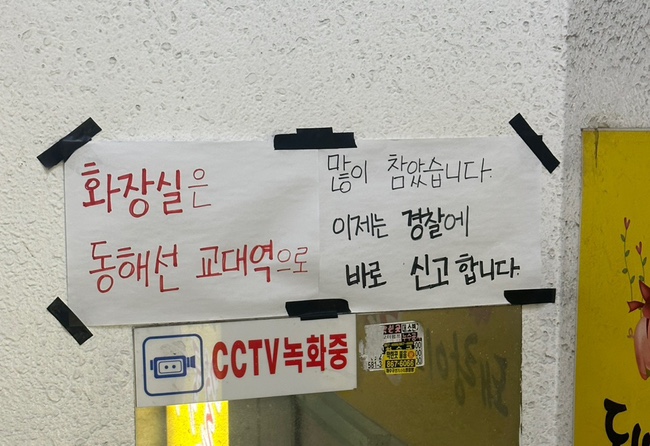 화장실은
동해선 교대역으로
많이 참았습니다.
이제는 경찰에
바로 신고합니다.
CCTV녹화중
867-6066